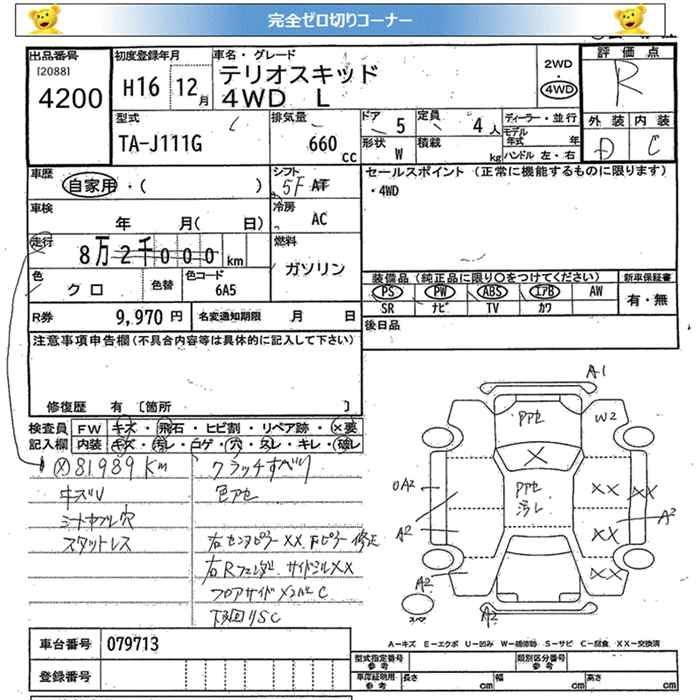 完全ゼロ切りコーナー
出品番号 初度登録年月 車名・グレード 2WD 評価点
[2088] H16 12月 テリオスキッド 4WD R
4200 4WD L
型式 排気量 ドア 定員 ディーラー・並行 外装 内装
TA-J111G 660cc 5 4人 モデル年式 年 D C
形状 W 積載 kg ハンドル 左・右
車歴 自家用・( ) シフト 5F AT セールスポイント (正常に機能するものに限ります)
・4WD
車検 年 月( 日) 冷房 AC
走行 8万2千000km 燃料 ガソリン
色 クロ 色替 色コード 6A5
装備品 (純正品に限り○をつけてください) 新車保証書
PS PW ABS エアB AW 有・無
SR ナビ TV カワ
R券 9,970円 名変通知期限 月 日 後日品
注意事項申告欄(不具合内容等は具体的に記入して下さい)
修復歴 有 [箇所 ]
検査員 FW キズ・飛石・ヒビ割・リペア跡・×要
記入欄 内装 キズ・汚レ・コゲ・穴・スレ・キレ・破レ
× 81989Km クラッチすべり
キズU 色アセ
シートカブル穴
スタットレス 右センタピラーXX Fピラー修正
右Rフェンダ サイドシルXX
フロアサイドメンバーC
下回りSC
A1
PPセ W2
X
PPセ
汚レ
XX XX
UA2
A2 XX A2
XX
A2
A2
スペア
車台番号 079713
登録番号
A―キズ E―エクボ U―凹み W―補修跡 S―サビ C―腐食 XX―交換済
型式指定番号 参考 類別区分番号 参考
車庫証明用 参考 長さ cm 幅 cm 高さ cm